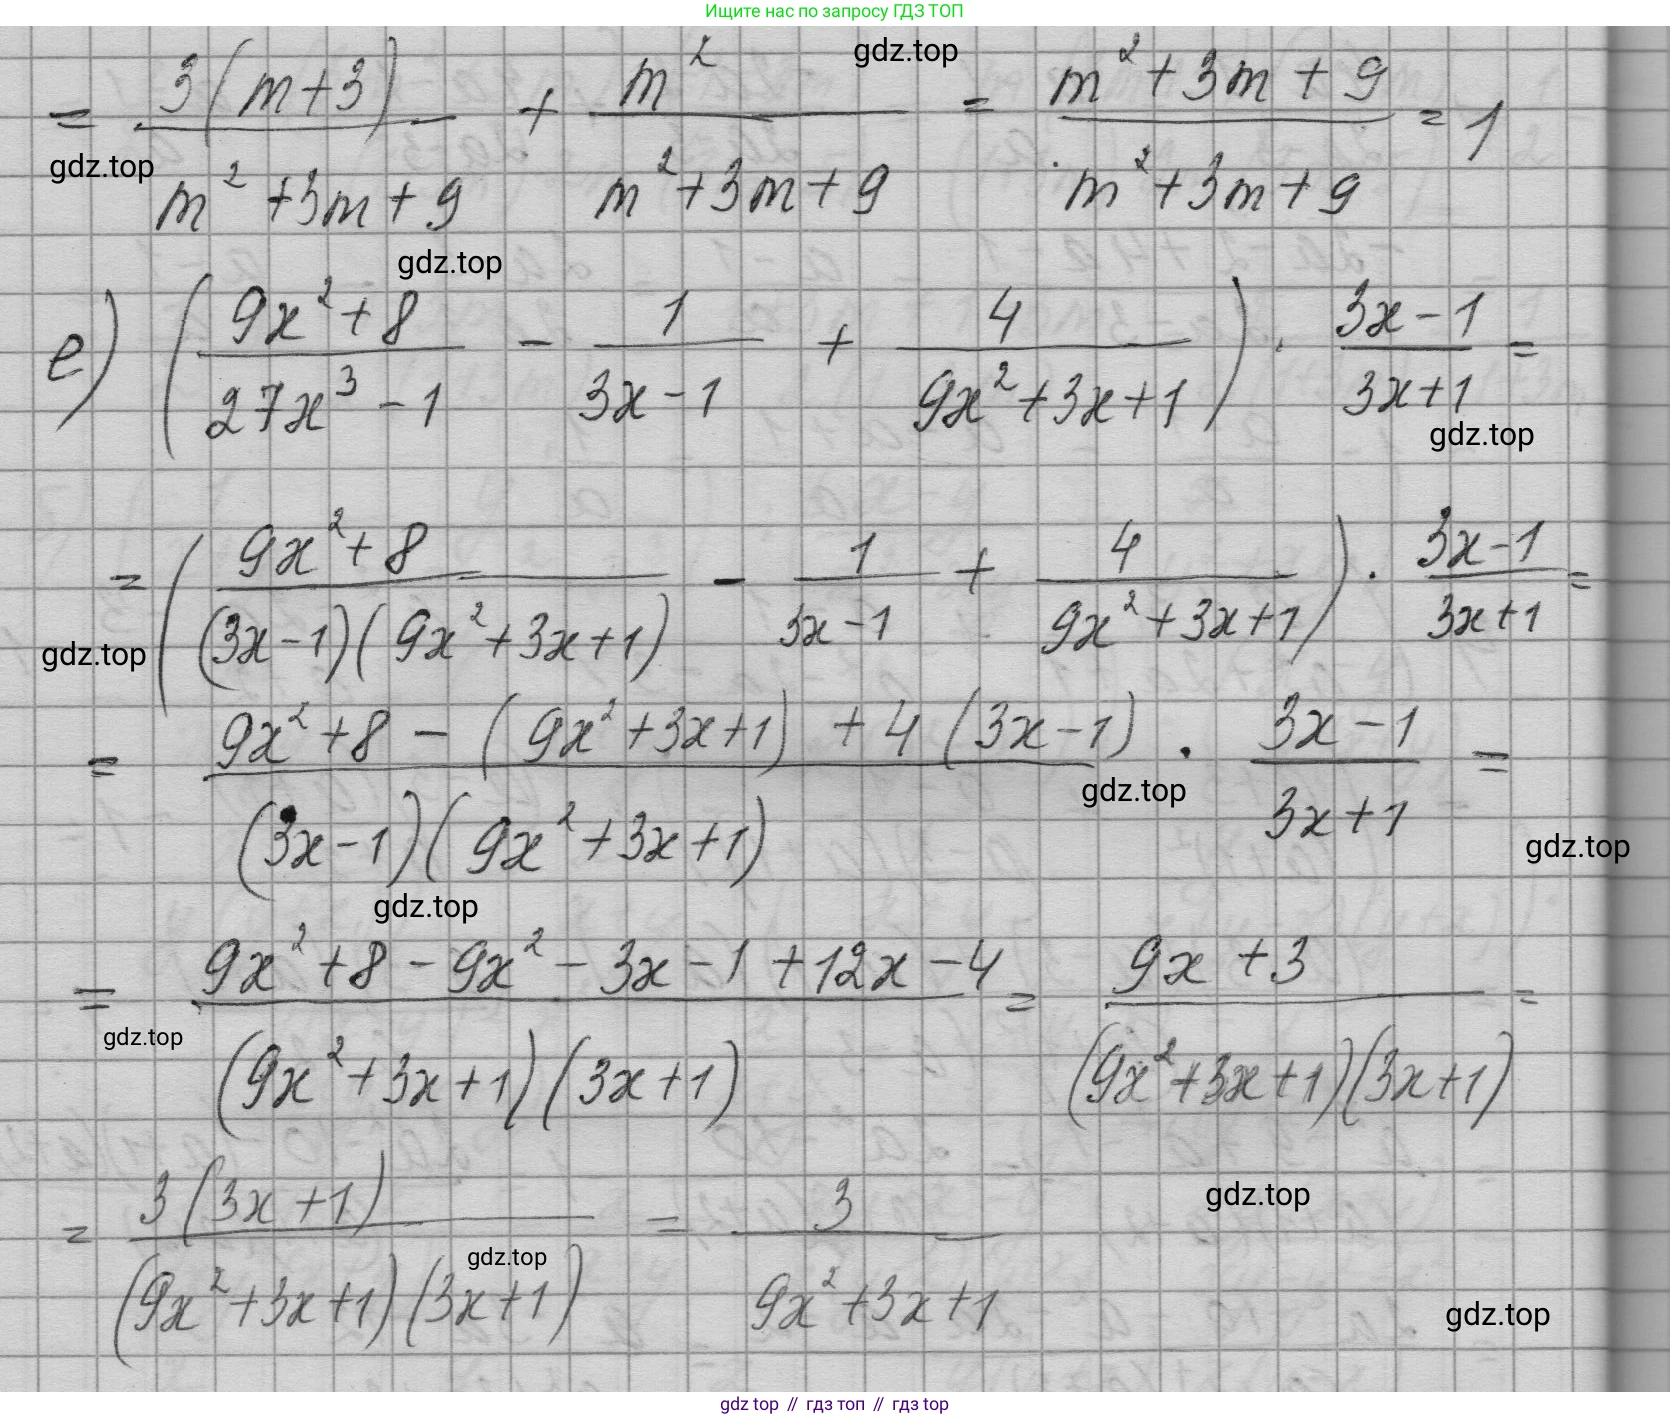 Ищите нас по запросу ГДЗ ТОП
gdz.top
= 3(m+3)/(m²+3m+9) + m²/(m²+3m+9) = (m²+3m+9)/(m²+3m+9) = 1
gdz.top
gdz.top
е) ((9x²+8)/(27x³-1) - 1/(3x-1) + 4/(9x²+3x+1)) · (3x-1)/(3x+1) =
gdz.top
= ((9x²+8)/((3x-1)(9x²+3x+1)) - 1/(3x-1) + 4/(9x²+3x+1)) · (3x-1)/(3x+1) =
gdz.top
= (9x²+8-(9x²+3x+1)+4(3x-1))/((3x-1)(9x²+3x+1)) · (3x-1)/(3x+1) =
gdz.top
gdz.top
gdz.top
= (9x²+8-9x²-3x-1+12x-4)/((9x²+3x+1)(3x+1)) = (9x+3)/((9x²+3x+1)(3x+1)) =
gdz.top
gdz.top
= 3(3x+1)/((9x²+3x+1)(3x+1)) = 3/(9x²+3x+1)
gdz.top
gdz.top
gdz top // гдз топ // гдз top